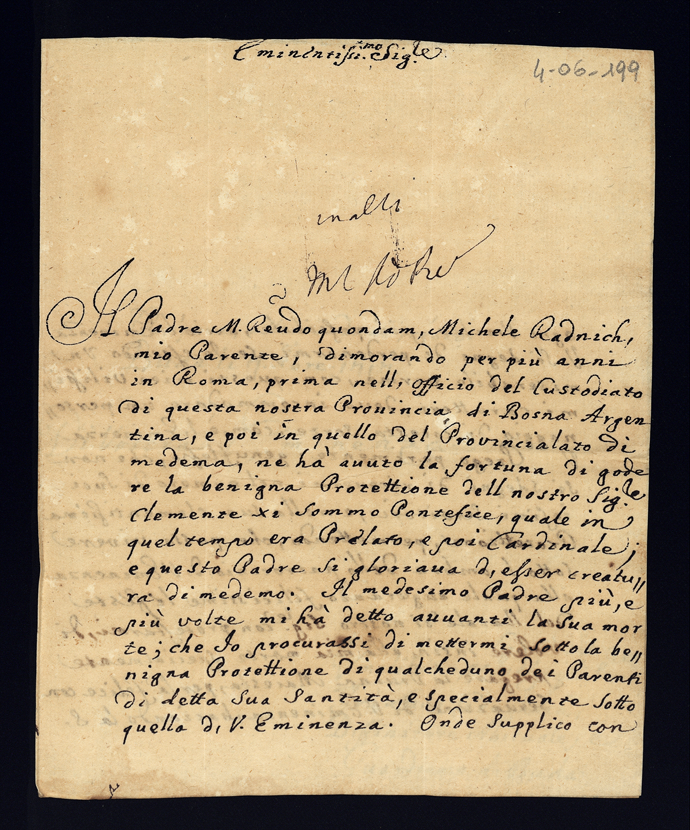 Eminentissi.mo Sig.le
4-06-199
Il Padre M. Reũdo quondam, Michele Radnich,
mio Parente, dimorando per più anni
in Roma, prima nell, officio del Custodiato
di questa nostra Prouincia, di Bosna Argen
tina, e poi in quello del Provincialato di
medema, ne hà auuto la fortuna di gode
re la benigna Protettione dell nostro Sig.le
Clemente xi Sommo Pontefice, quale in
quel tempo era Prelato, e poi Cardinale;
e questo Padre si gloriaua d, esser creatu//
ra di medemo. Il medesimo Padre più, e
più volte mi hà detto auuanti la sua mor
te; che Io procurassi di mettermi sotto la be//
nigna Protettione di qualcheduno dei Parenti
di detta Sua Santità, e specialmente sotto
quella d, V. Eminenza. Onde supplico con